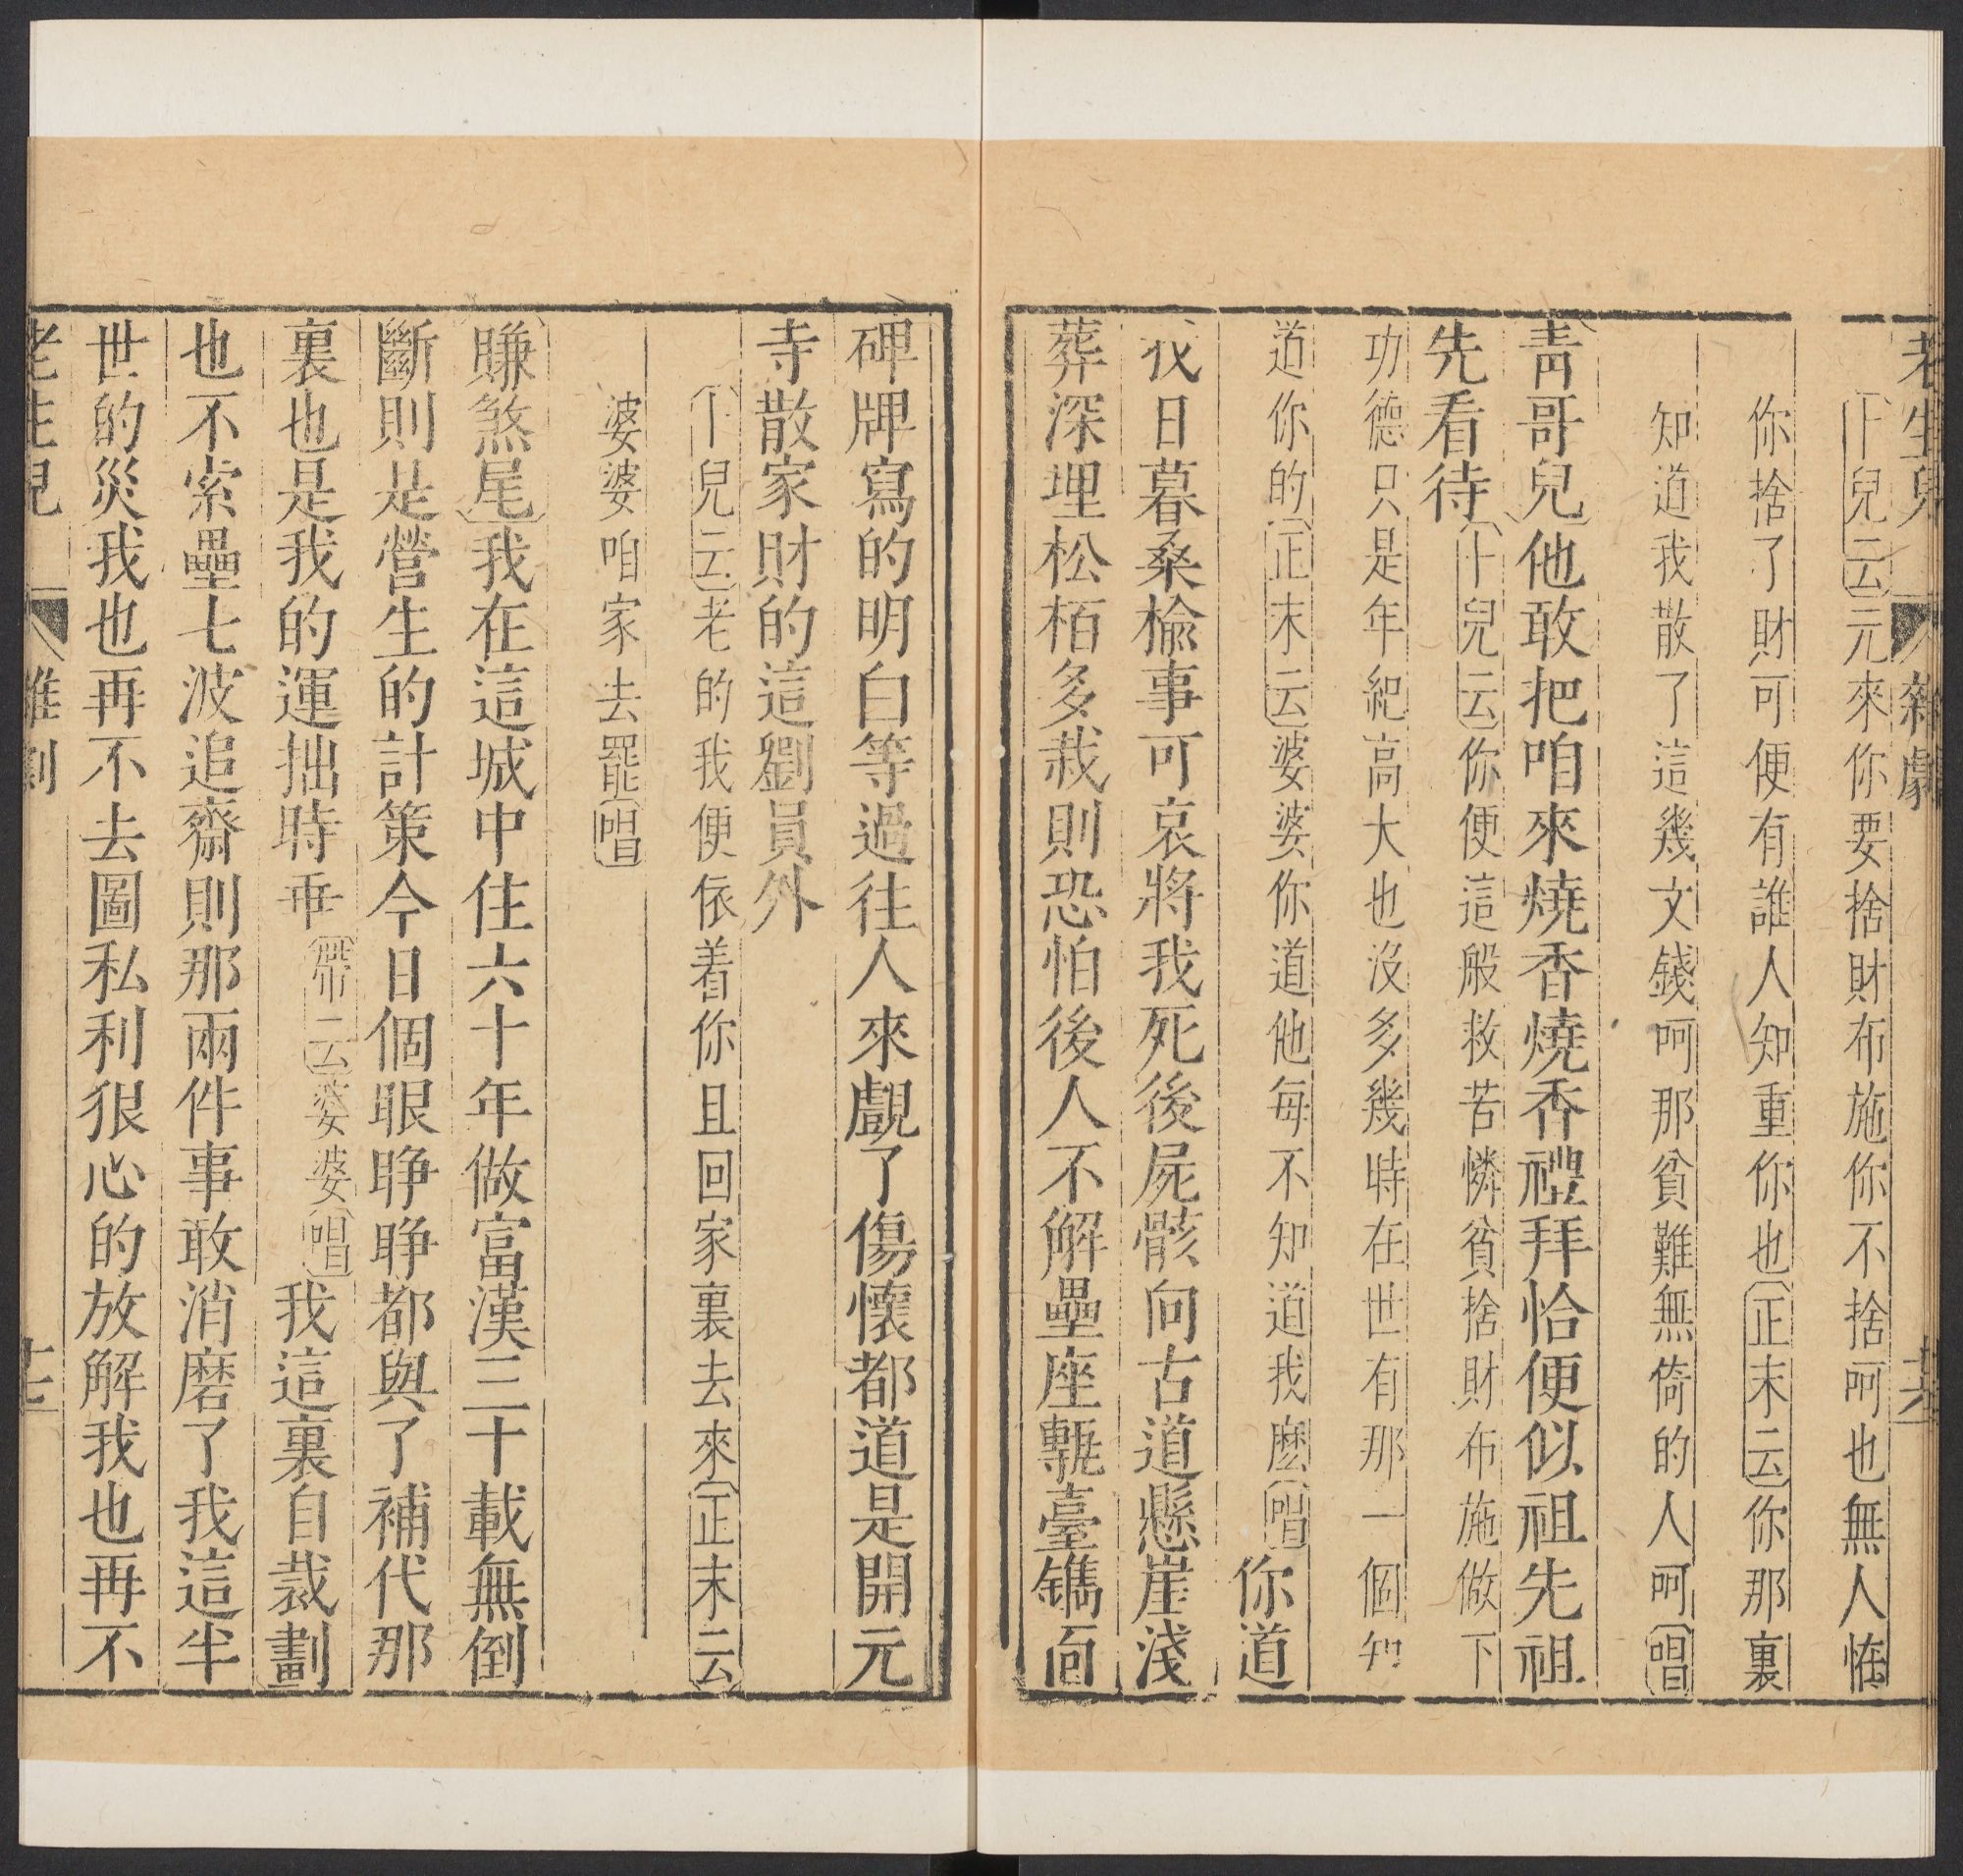 老生兒 雜劇 十六
〔卜兒云〕元來你要捨財布施你不捨呵也無人怪
你捨了財可便有誰人知重你也〔正末云〕你那裏
知道我散了這幾文錢呵那貧難無倚的人呵〔唱〕
〔青哥兒〕他敢把咱來燒香燒香禮拜恰便似祖先祖
先看待〔卜兒云〕你便這般救苦憐貧捨財布施做下
功德只是年紀高大也沒多幾時在世有那一個知
道你的〔正末云〕婆婆你道他每不知道我麽〔唱〕你道
我日暮桑榆事可哀將我死後屍骸向古道懸崖淺
葬深埋松栢多栽則恐怕後人不解壘座磚臺鐫面
碑牌寫的明白等過往人來覷了傷懷都道是開元
寺散家財的這劉員外
〔卜兒云〕老的我便依着你且回家裏去來〔正末云〕
婆婆咱家去罷〔唱〕
〔賺煞尾〕我在這城中住六十年做富漢三十載無倒
斷則是營生的計策今日個眼睁睁都與了補代那
裏也是我的運拙時乖〔帶云〕婆婆〔唱〕我這裏自裁劃
也不索壘七波追齋則那兩件事敢消磨了我這半
世的災我也再不去圖私利狠心的放解我也再不
老生兒 雜劇 十七